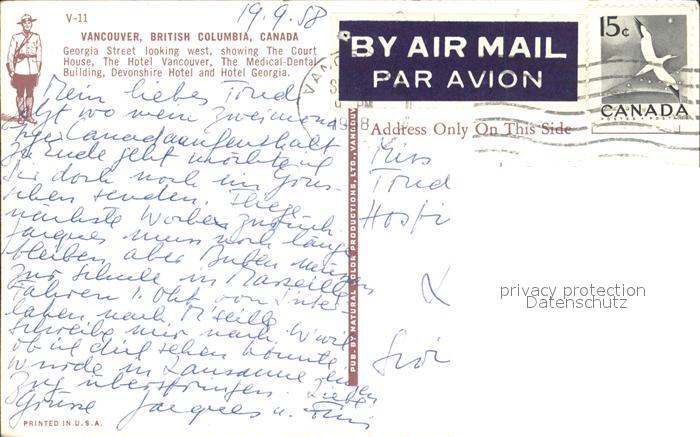 19.9.58
V-11
VANCOUVER, BRITISH COLUMBIA, CANADA
Georgia Street looking west, showing The Court
House, The Hotel Vancouver, The Medical-Dental
Building, Devonshire Hotel and Hotel Georgia.
BY AIR MAIL
PAR AVION
15¢
CANADA
POSTES · POSTAGE
Address Only On This Side
Mein liebes Trudi
jetzt wo mein zweimona-
tiger Canadaaufenthalt
zu Ende geht möchte ich
Dir doch noch ein Grüss-
chen senden. Fliege
nächste Woche zurück.
Jacques muss noch länger
bleiben aber Buben müssen
zur Schule in Marseille
Fahren 1. Okt von Inter-
laken nach M'seille
schreibe mir nach
ob ich dich sehen könnte
würde in Lausanne
Zug überspringen. Liebe
Grüsse Jacques u.
Miss
Trud
PUB. BY NATURAL COLOR PRODUCTIONS, LTD., VANCOUV
privacy protection
Datenschutz
PRINTED IN U.S.A.